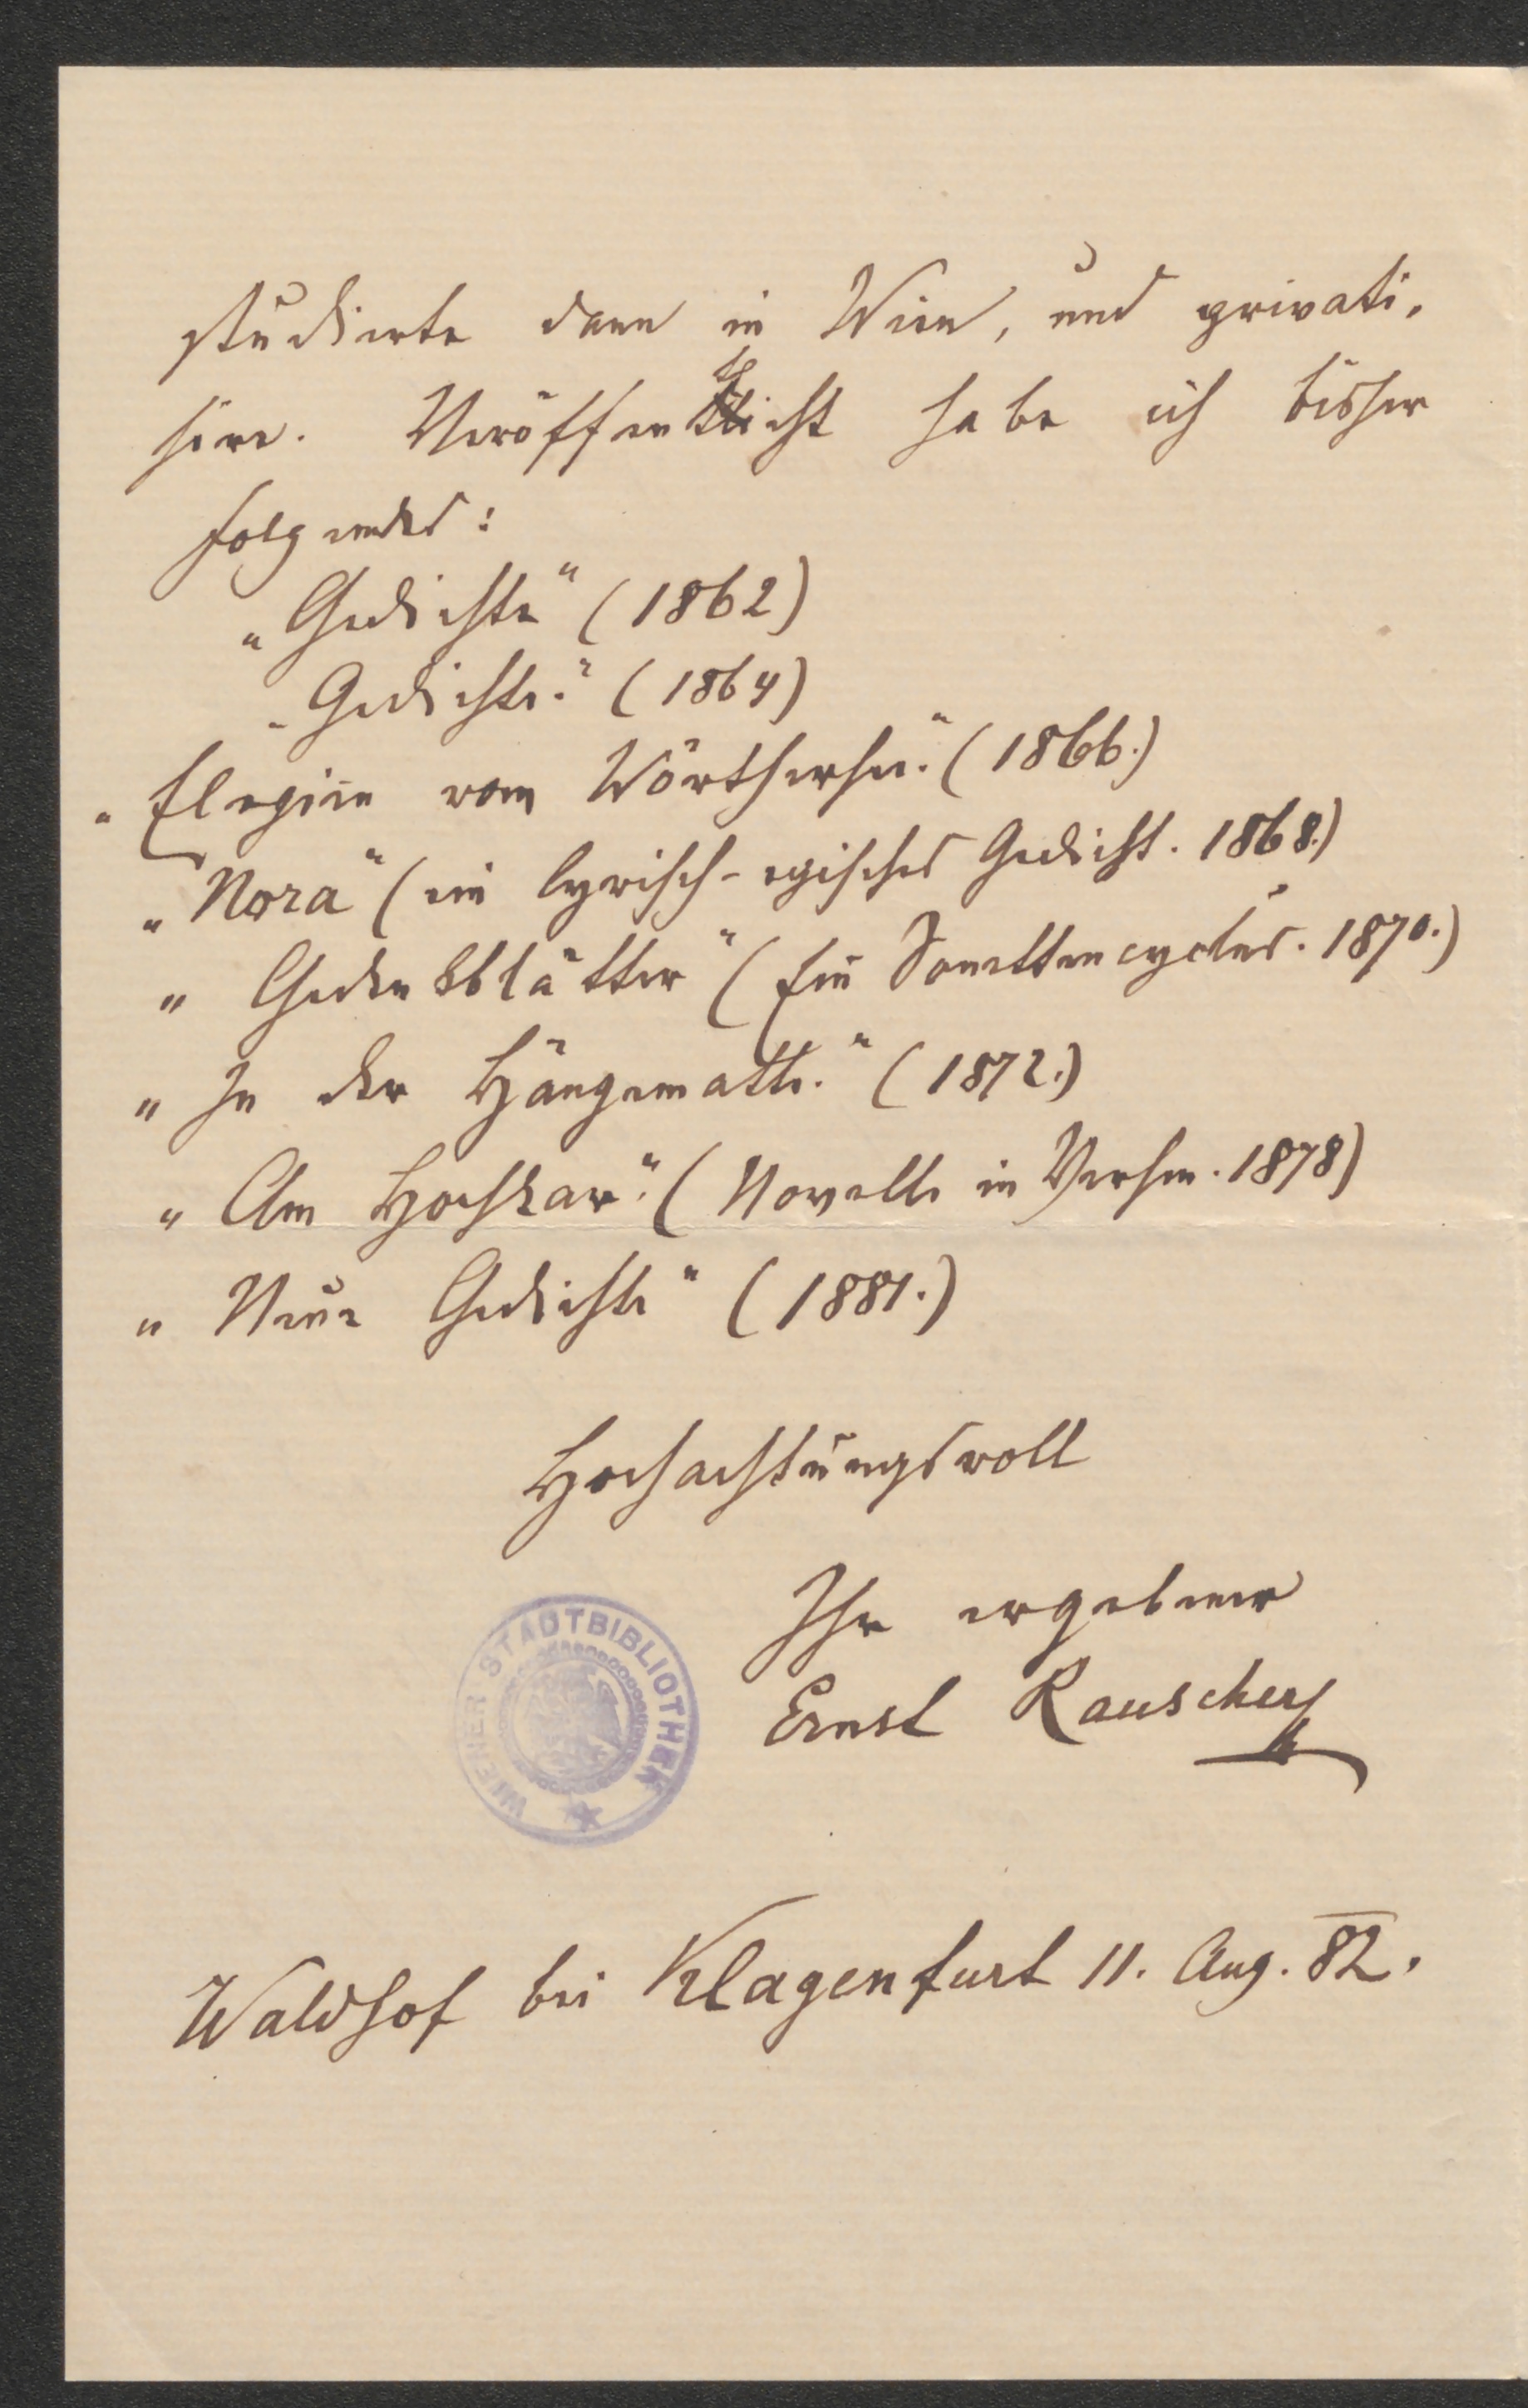 studierte dann in Wien, und privati-
sire. Veröffentlicht habe ich bisher
folgendes:
„Gedichte" (1862)
„Gedichte." (1864)
„Elegien vom Wörthersee." (1866.)
„Nora" (ein lyrisch-episches Gedicht. 1868.)
„Gedenkblätter" (Ein Sonettencyclus. 1870.)
„In der Hängematte." (1872.)
„Am Hochkar." (Novelle in Versen. 1878)
„Neue Gedichte" (1881.)
Hochachtungsvoll
Ihr ergebener
Ernst Rauscher
WIENER STADTBIBLIOTHEK
Waldhof bei Klagenfurt 11. Aug. 82.